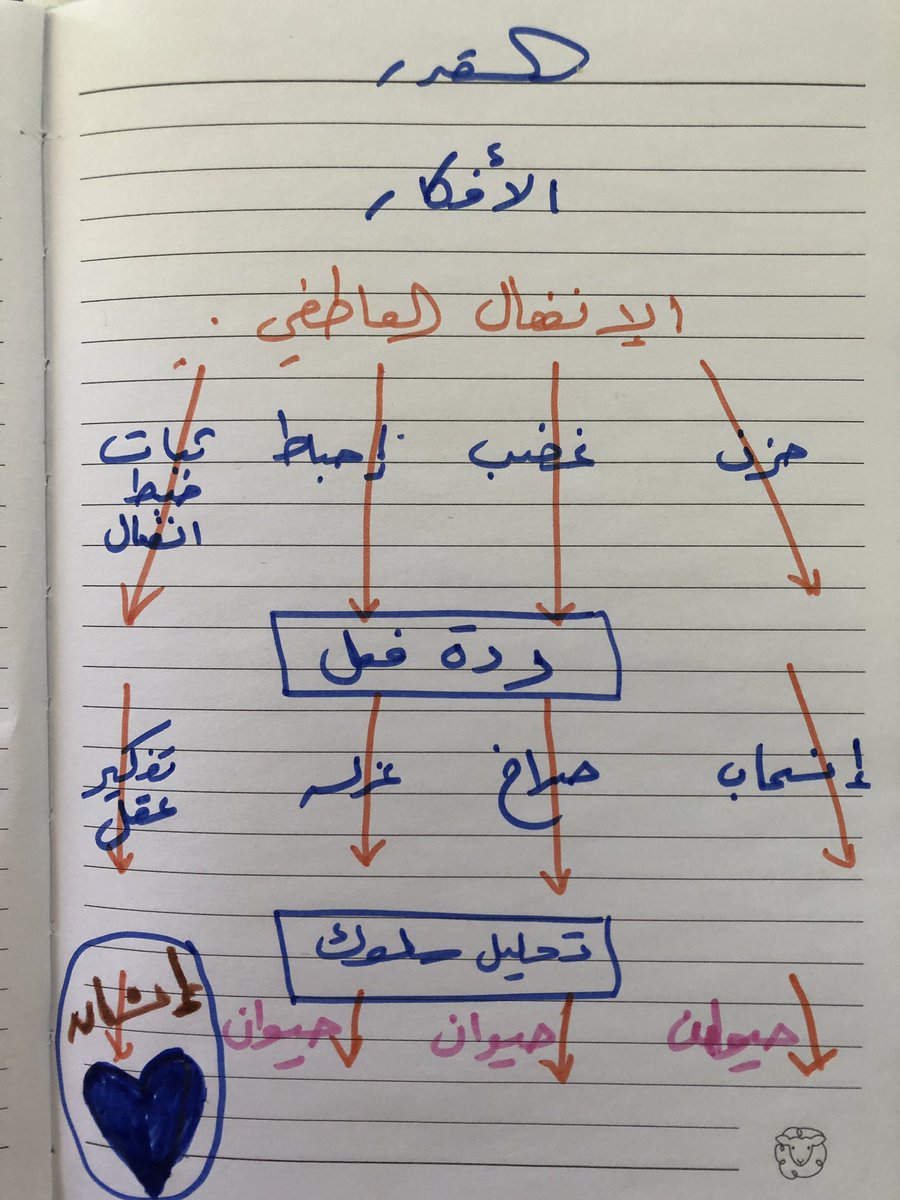 الأفكار
الإنفعال العاطفي .
حزن غضب إحباط ثبات
ضبط
انفعال
ردة فعل
إنسحاب صراخ عزله تفكير
عقل
تحليل سلوك
حيوان حيوان حيوان إنسان